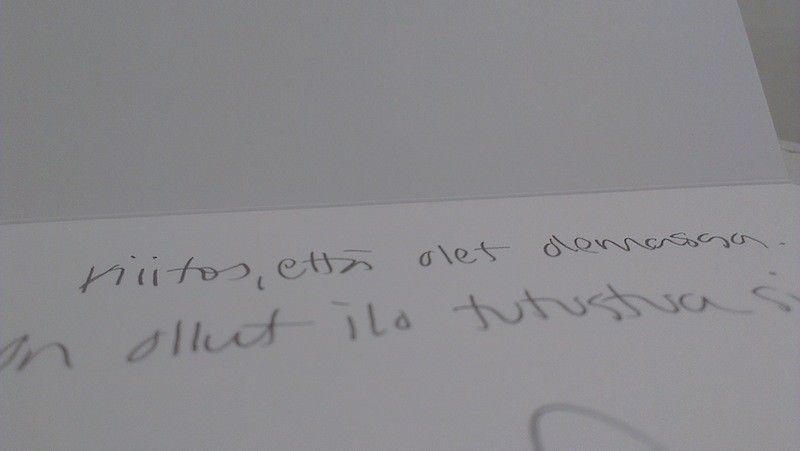 Kiitos, että olet olemassa.
on ollut ilo tutustua